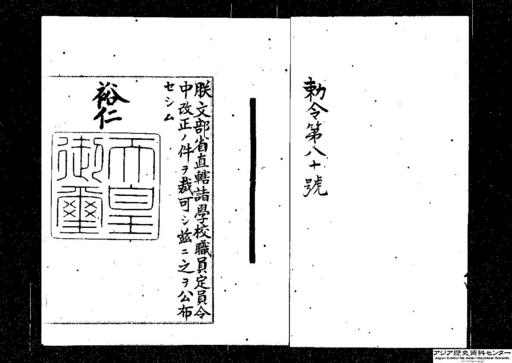 勅令第八十號
朕文部省直轄諸學校職員定員令
中改正ノ件ヲ裁可シ玆ニ之ヲ公布
セシム
裕仁
天皇
御璽
アジア歴史資料センター
Japan Center for Asian Historical Records